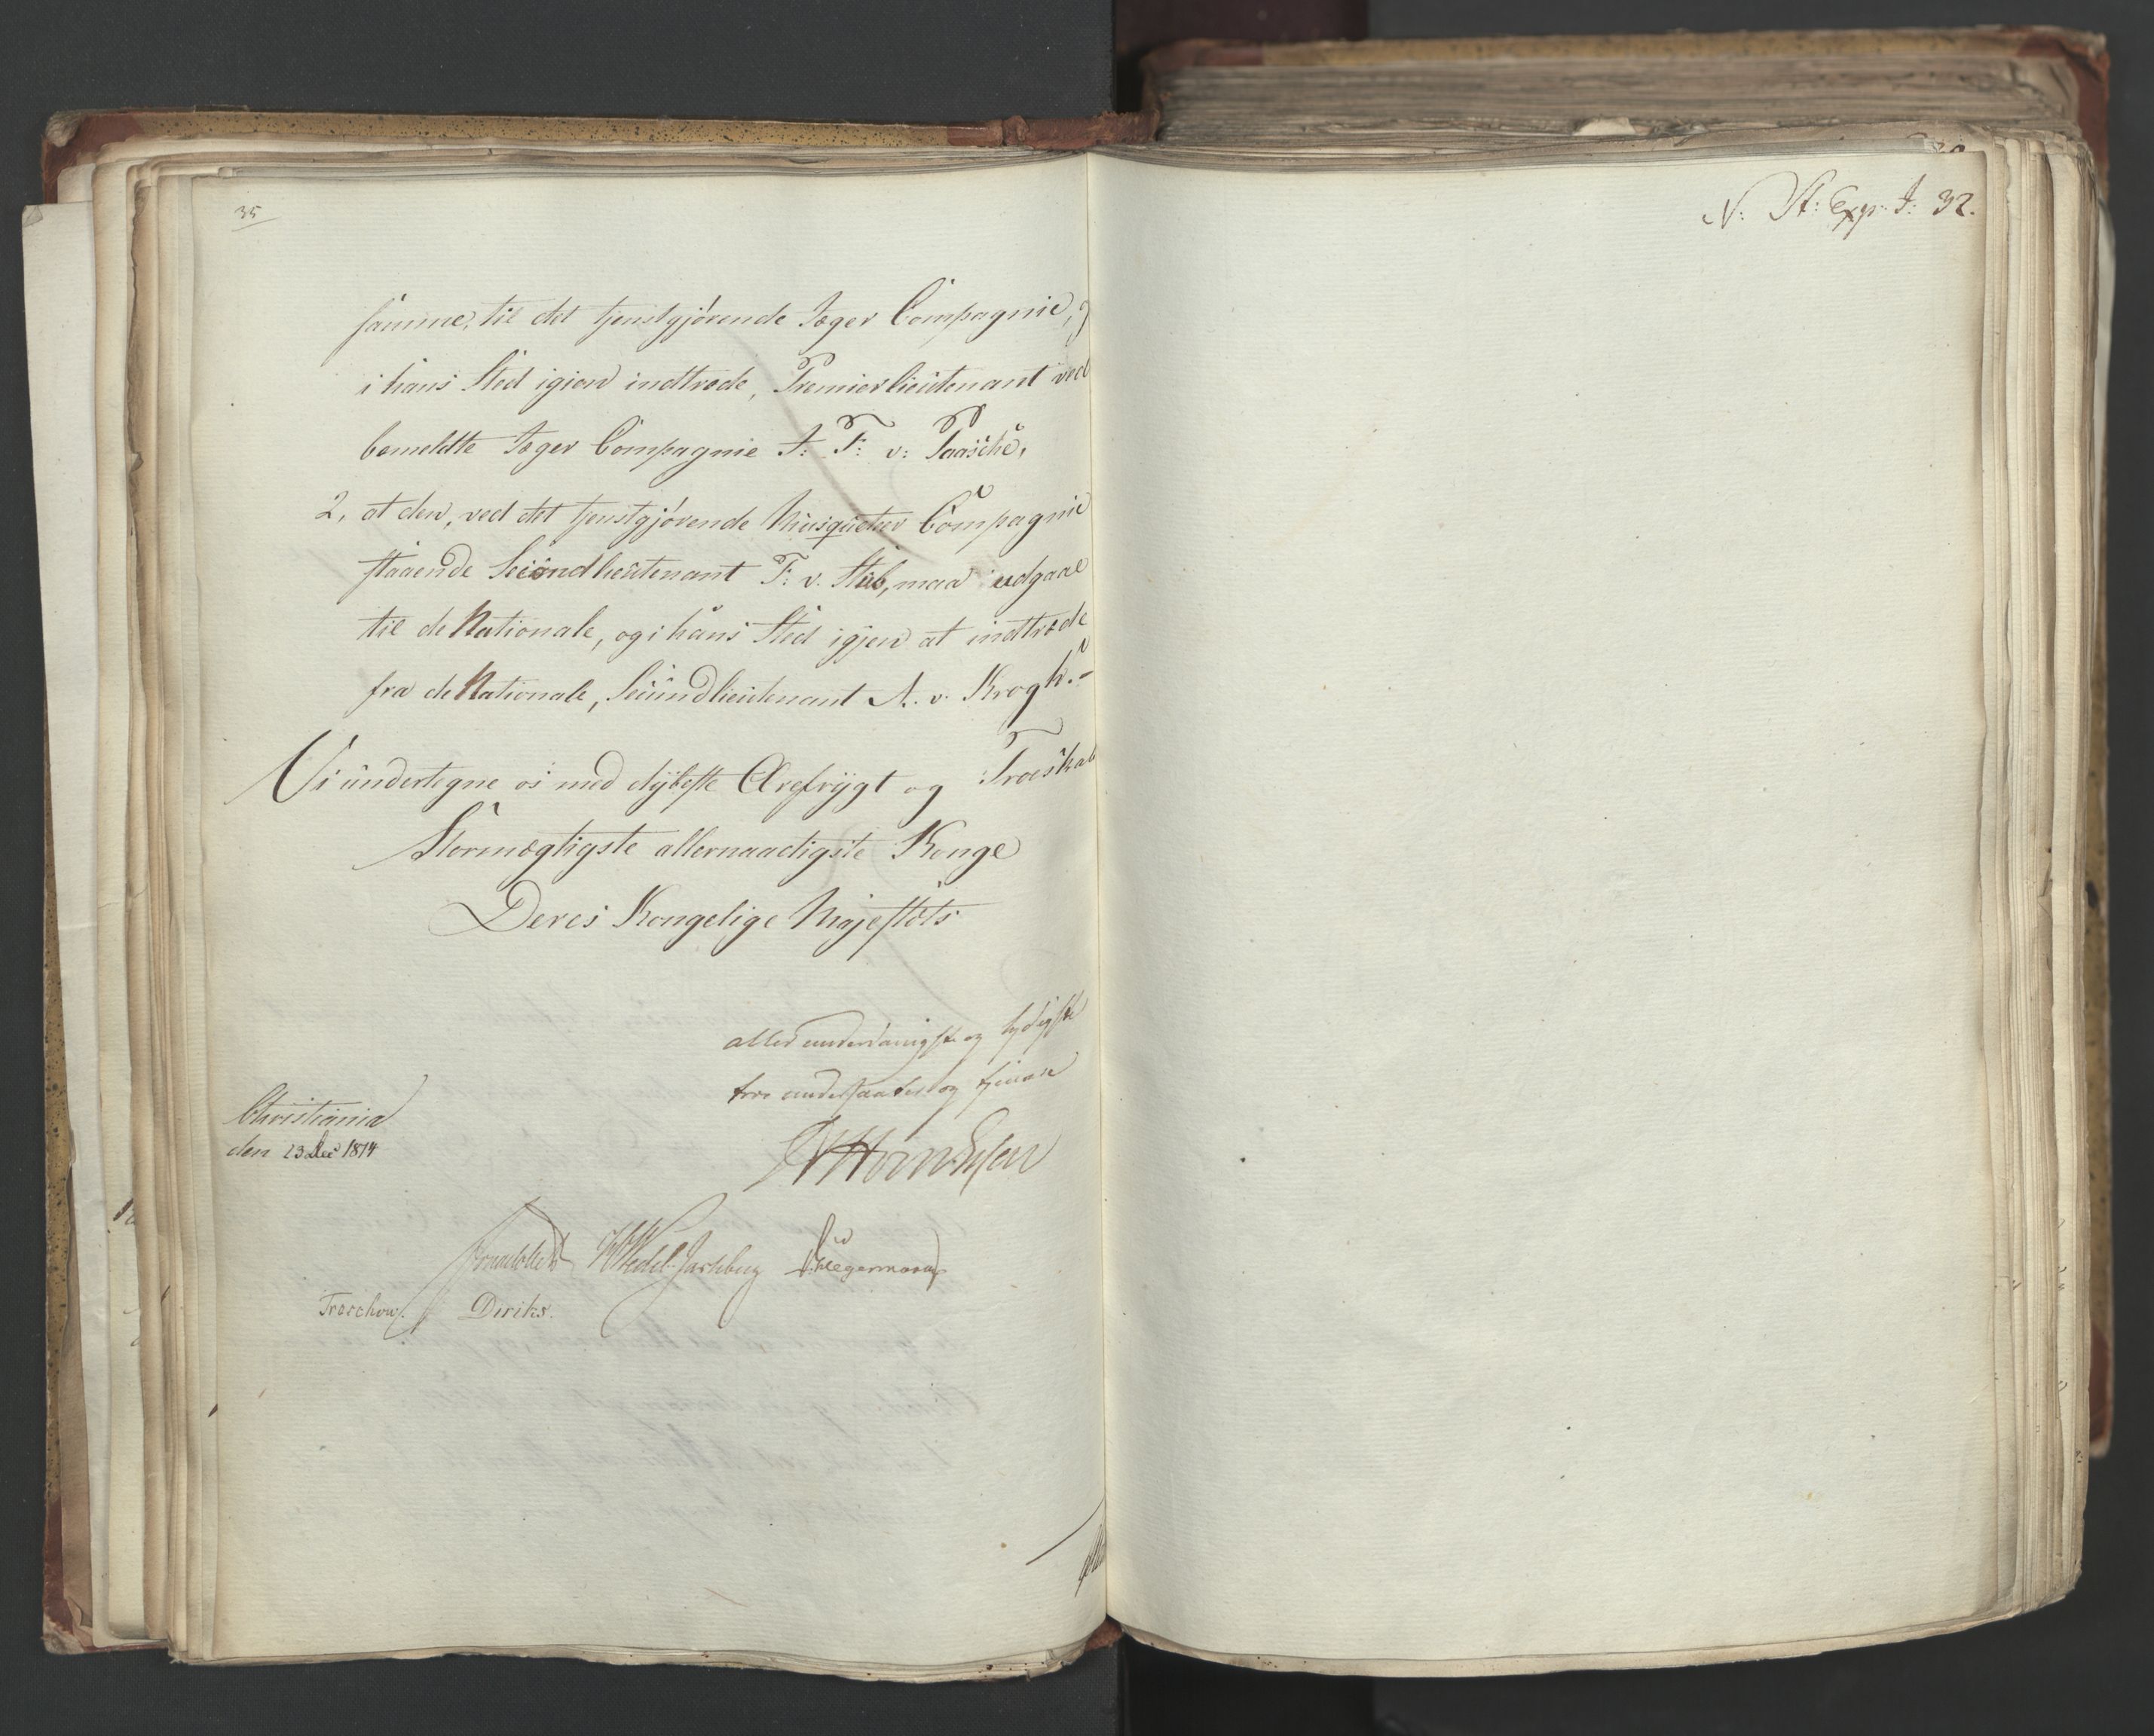 35
samme, til det tjenstgjørende Jæger Compagnie, og
i hans Sted igien indtræde, Premierlieutenant ved
bemeldte Jæger Compagnie J: F: v: Paasche,
2, at den, ved det tjenstgjørende Musqueteer Compagnie
staaende Secondlieutenant F: v. Stub, maa udgaae
til de Nationale, og i hans Sted igjen at indtræde
fra de Nationale, Secundlieutenant N. v. Krogh.-
Vi undertegne os med dybeste Ærefrygt og Troeskab
Stormægtigste allernaadigste Konge
Deres Kongelige Majestæts
allerunderdanigste og lydigste
troe undersaatter og tjenere
Christiania
den 23 Dec 1814
Sommerhielm HWedel-Jarlsberg DHegermann
Treschow. Diriks.
N: St: Exp: J: 32.